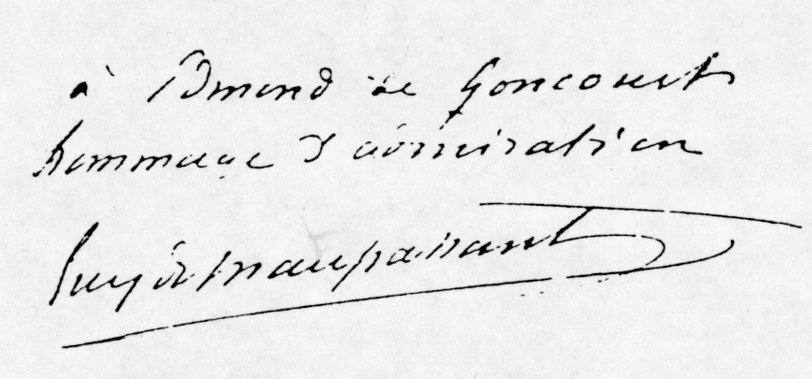 à Edmond de Goncourt
hommage d'admiration
Guy de Maupassant